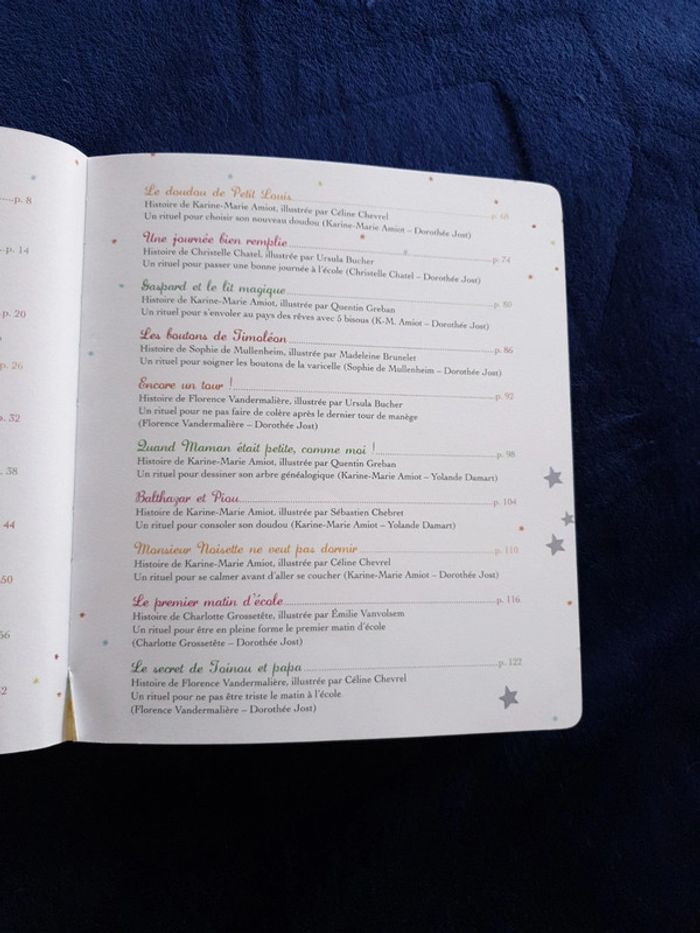 p. 8
p. 14
p. 20
p. 26
p. 32
38
44
50
56
2
Le doudou de Petit Louis p. 68
Histoire de Karine-Marie Amiot, illustrée par Céline Chevrel
Un rituel pour choisir son nouveau doudou (Karine-Marie Amiot – Dorothée Jost)
Une journée bien remplie p. 74
Histoire de Christelle Chatel, illustrée par Ursula Bucher
Un rituel pour passer une bonne journée à l'école (Christelle Chatel – Dorothée Jost)
Gaspard et le lit magique p. 80
Histoire de Karine-Marie Amiot, illustrée par Quentin Greban
Un rituel pour s'envoler au pays des rêves avec 5 bisous (K-M. Amiot – Dorothée Jost)
Les boutons de Timoléon p. 86
Histoire de Sophie de Mullenheim, illustrée par Madeleine Brunelet
Un rituel pour soigner les boutons de la varicelle (Sophie de Mullenheim – Dorothée Jost)
Encore un tour ! p. 92
Histoire de Florence Vandermalière, illustrée par Ursula Bucher
Un rituel pour ne pas faire de colère après le dernier tour de manège
(Florence Vandermalière – Dorothée Jost)
Quand Maman était petite, comme moi ! p. 98
Histoire de Karine-Marie Amiot, illustrée par Quentin Greban
Un rituel pour dessiner son arbre généalogique (Karine-Marie Amiot – Yolande Damart)
Balthazar et Piou p. 104
Histoire de Karine-Marie Amiot, illustrée par Sébastien Chebret
Un rituel pour consoler son doudou (Karine-Marie Amiot – Yolande Damart)
Monsieur Noisette ne veut pas dormir p. 110
Histoire de Karine-Marie Amiot, illustrée par Céline Chevrel
Un rituel pour se calmer avant d'aller se coucher (Karine-Marie Amiot – Dorothée Jost)
Le premier matin d'école p. 116
Histoire de Charlotte Grossetête, illustrée par Émilie Vanvolsem
Un rituel pour être en pleine forme le premier matin d'école
(Charlotte Grossetête – Dorothée Jost)
Le secret de Toinou et papa p. 122
Histoire de Florence Vandermalière, illustrée par Céline Chevrel
Un rituel pour ne pas être triste le matin à l'école
(Florence Vandermalière – Dorothée Jost)